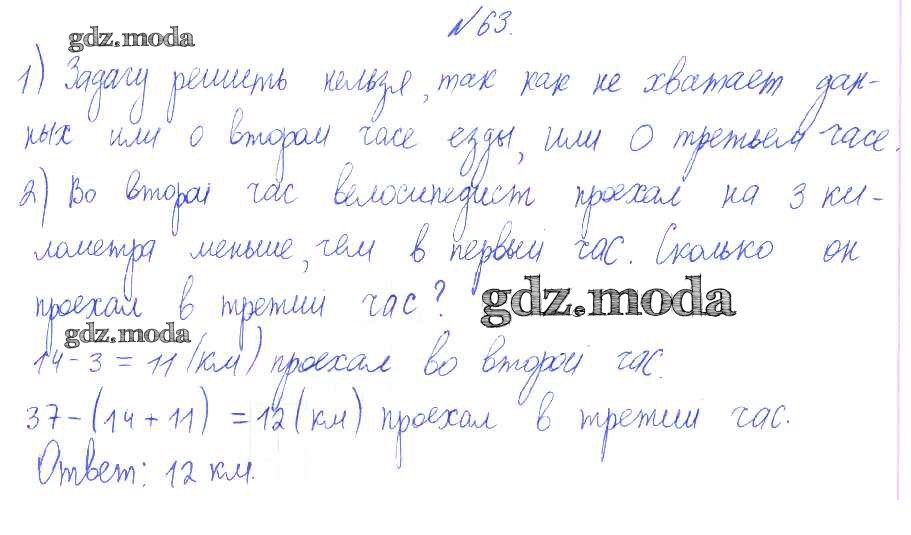 №63.
gdz.moda
1) Задачу решить нельзя, так как не хватает дан-
ных или о втором часе езды, или о третьем часе.
2) Во второй час велосипедист проехал на 3 ки-
лометра меньше, чем в первый час. Сколько он
проехал в третий час?
gdz.moda
gdz.moda
14-3=11(км) проехал во второй час.
37-(14+11)=12(км) проехал в третий час.
Ответ: 12 км.